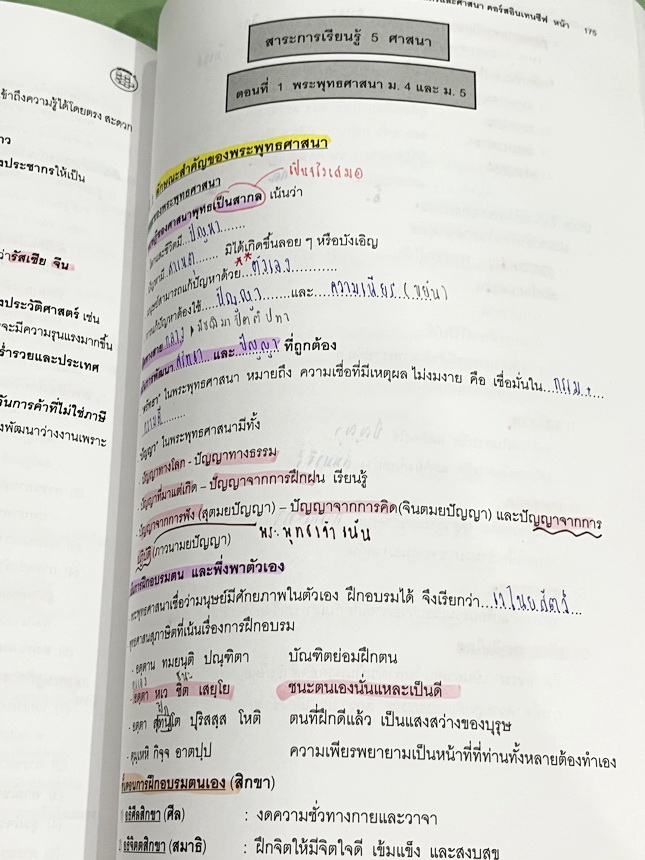 และศาสนา คอร์สอินเทนซีฟ หน้า 175
สาระการเรียนรู้ 5 ศาสนา
ตอนที่ 1 พระพุทธศาสนา ม. 4 และ ม. 5
ข้าถึงความรู้ได้โดยตรง สะดวก
าว
งประชากรให้เป็น
ว่ารัสเซีย จีน
งประวัติศาสตร์ เช่น
จะมีความรุนแรงมากขึ้น
ร่ำรวยและประเทศ
วันการค้าที่ไม่ใช่ภาษี
งพัฒนาว่างงานเพราะ
ลักษณะสำคัญของพระพุทธศาสนา
ของพระพุทธศาสนา
ของศาสนาพุทธเป็นสากล เน้นว่า
และชีวิตมี...ปัญหา.......
ปัญหามี...สาเหตุ...... มิได้เกิดขึ้นลอย ๆ หรือบังเอิญ
สามารถแก้ปัญหาด้วย...ตัวเอง............
การแก้ปัญหาต้องใช้.....ปัญญา......และ....ความเพียร (ขยัน)
ทางสายกลาง มัชฌิมาปฏิปทา
การพัฒนา ศรัทธา และ ปัญญา ที่ถูกต้อง
"ศรัทธา" ในพระพุทธศาสนา หมายถึง ความเชื่อที่มีเหตุผล ไม่งมงาย คือ เชื่อมั่นใน...กรรม
"ปัญญา" ในพระพุทธศาสนามีทั้ง
- ปัญญาทางโลก - ปัญญาทางธรรม
- ปัญญาที่มาแต่เกิด – ปัญญาจากการฝึกฝน เรียนรู้
- ปัญญาจากการฟัง (สุตมยปัญญา) – ปัญญาจากการคิด(จินตมยปัญญา) และปัญญาจากการ
ปฏิบัติ (ภาวนามยปัญญา) พระพุทธเจ้าเน้น
การฝึกอบรมตน และพึ่งพาตัวเอง
พระพุทธศาสนาเชื่อว่ามนุษย์มีศักยภาพในตัวเอง ฝึกอบรมได้ จึงเรียกว่า...เวไนยสัตว์...
พุทธศาสนสุภาษิตที่เน้นเรื่องการฝึกอบรม
- อตฺตานํ ทมยนฺติ ปณฺฑิตา บัณฑิตย่อมฝึกตน
- อตฺตา หเว ชิตํ เสยฺโย ชนะตนเองนั่นแหละเป็นดี
- อตฺตา สุทนฺโต ปุริสสฺส โชติ ตนที่ฝึกดีแล้ว เป็นแสงสว่างของบุรุษ
- ตุมฺเหหิ กิจฺจํ อาตปฺปํ ความเพียรพยายามเป็นหน้าที่ที่ท่านทั้งหลายต้องทำเอง
ขั้นตอนการฝึกอบรมตนเอง (สิกขา)
1 อธิศีลสิกขา (ศีล) : งดความชั่วทางกายและวาจา
2 อธิจิตตสิกขา (สมาธิ) : ฝึกจิตให้มีจิตใจดี เข้มแข็ง และสงบสุข